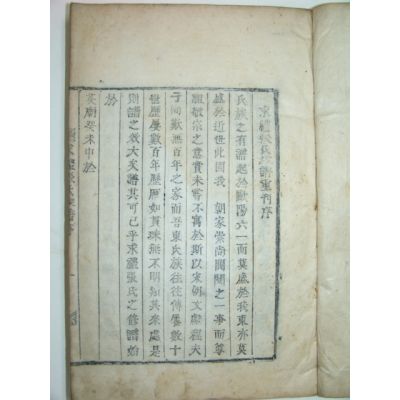 求禮張氏譜重刊序
氏族之有譜起於歐陽六一而莫盛於我東亦莫
盛於近世此固我 朝家崇尚閥閱之一事而尊
祖敬宗之意實未嘗不寓於斯以宋朝文獻程夫
子尚歎無百年之家而吾東氏族往往傳屢數十
世歷屢數百年歷歷如貫珠無不明知其來處是
則譜之效大矣譜其可已乎求禮張氏之修譜始
於
英廟癸未申於